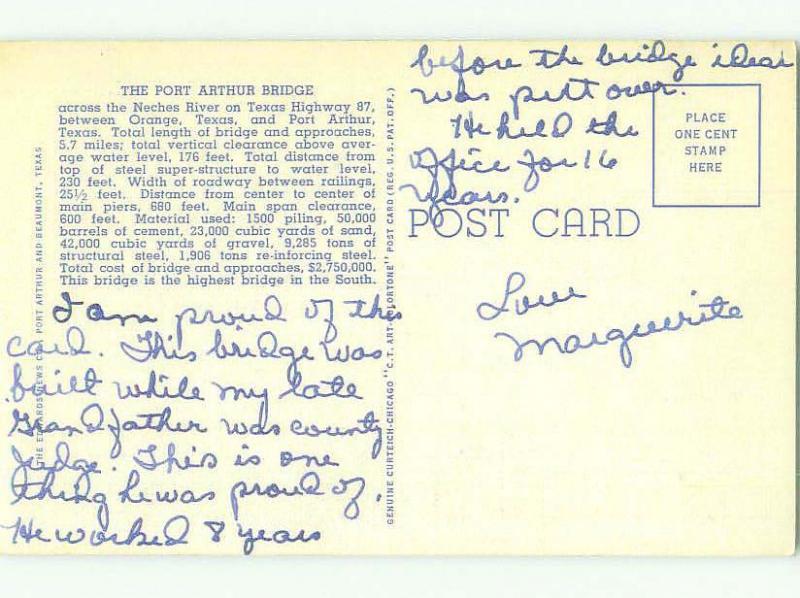 THE PORT ARTHUR BRIDGE
across the Neches River on Texas Highway 87,
between Orange, Texas, and Port Arthur,
Texas. Total length of bridge and approaches,
5.7 miles; total vertical clearance above aver-
age water level, 176 feet. Total distance from
top of steel super-structure to water level,
230 feet. Width of roadway between railings,
25½ feet. Distance from center to center of
main piers, 680 feet. Main span clearance,
600 feet. Material used: 1500 piling, 50,000
barrels of cement, 23,000 cubic yards of sand,
42,000 cubic yards of gravel, 9,285 tons of
structural steel, 1,906 tons re-inforcing steel.
Total cost of bridge and approaches, $2,750,000.
This bridge is the highest bridge in the South.
I am proud of this
card. This bridge was
built while my late
Grandfather was county
Judge. This is one
thing he was proud of.
He worked 8 years
before the bridge idear
was putt over.
He held the
office for 16
years.
THE EDWARDS NEWS CO., PORT ARTHUR AND BEAUMONT, TEXAS
GENUINE CURTEICH-CHICAGO "C.T. ART-COLORTONE" POST CARD (REG. U.S. PAT. OFF.)
PLACE
ONE CENT
STAMP
HERE
POST CARD
Love
Marguerite